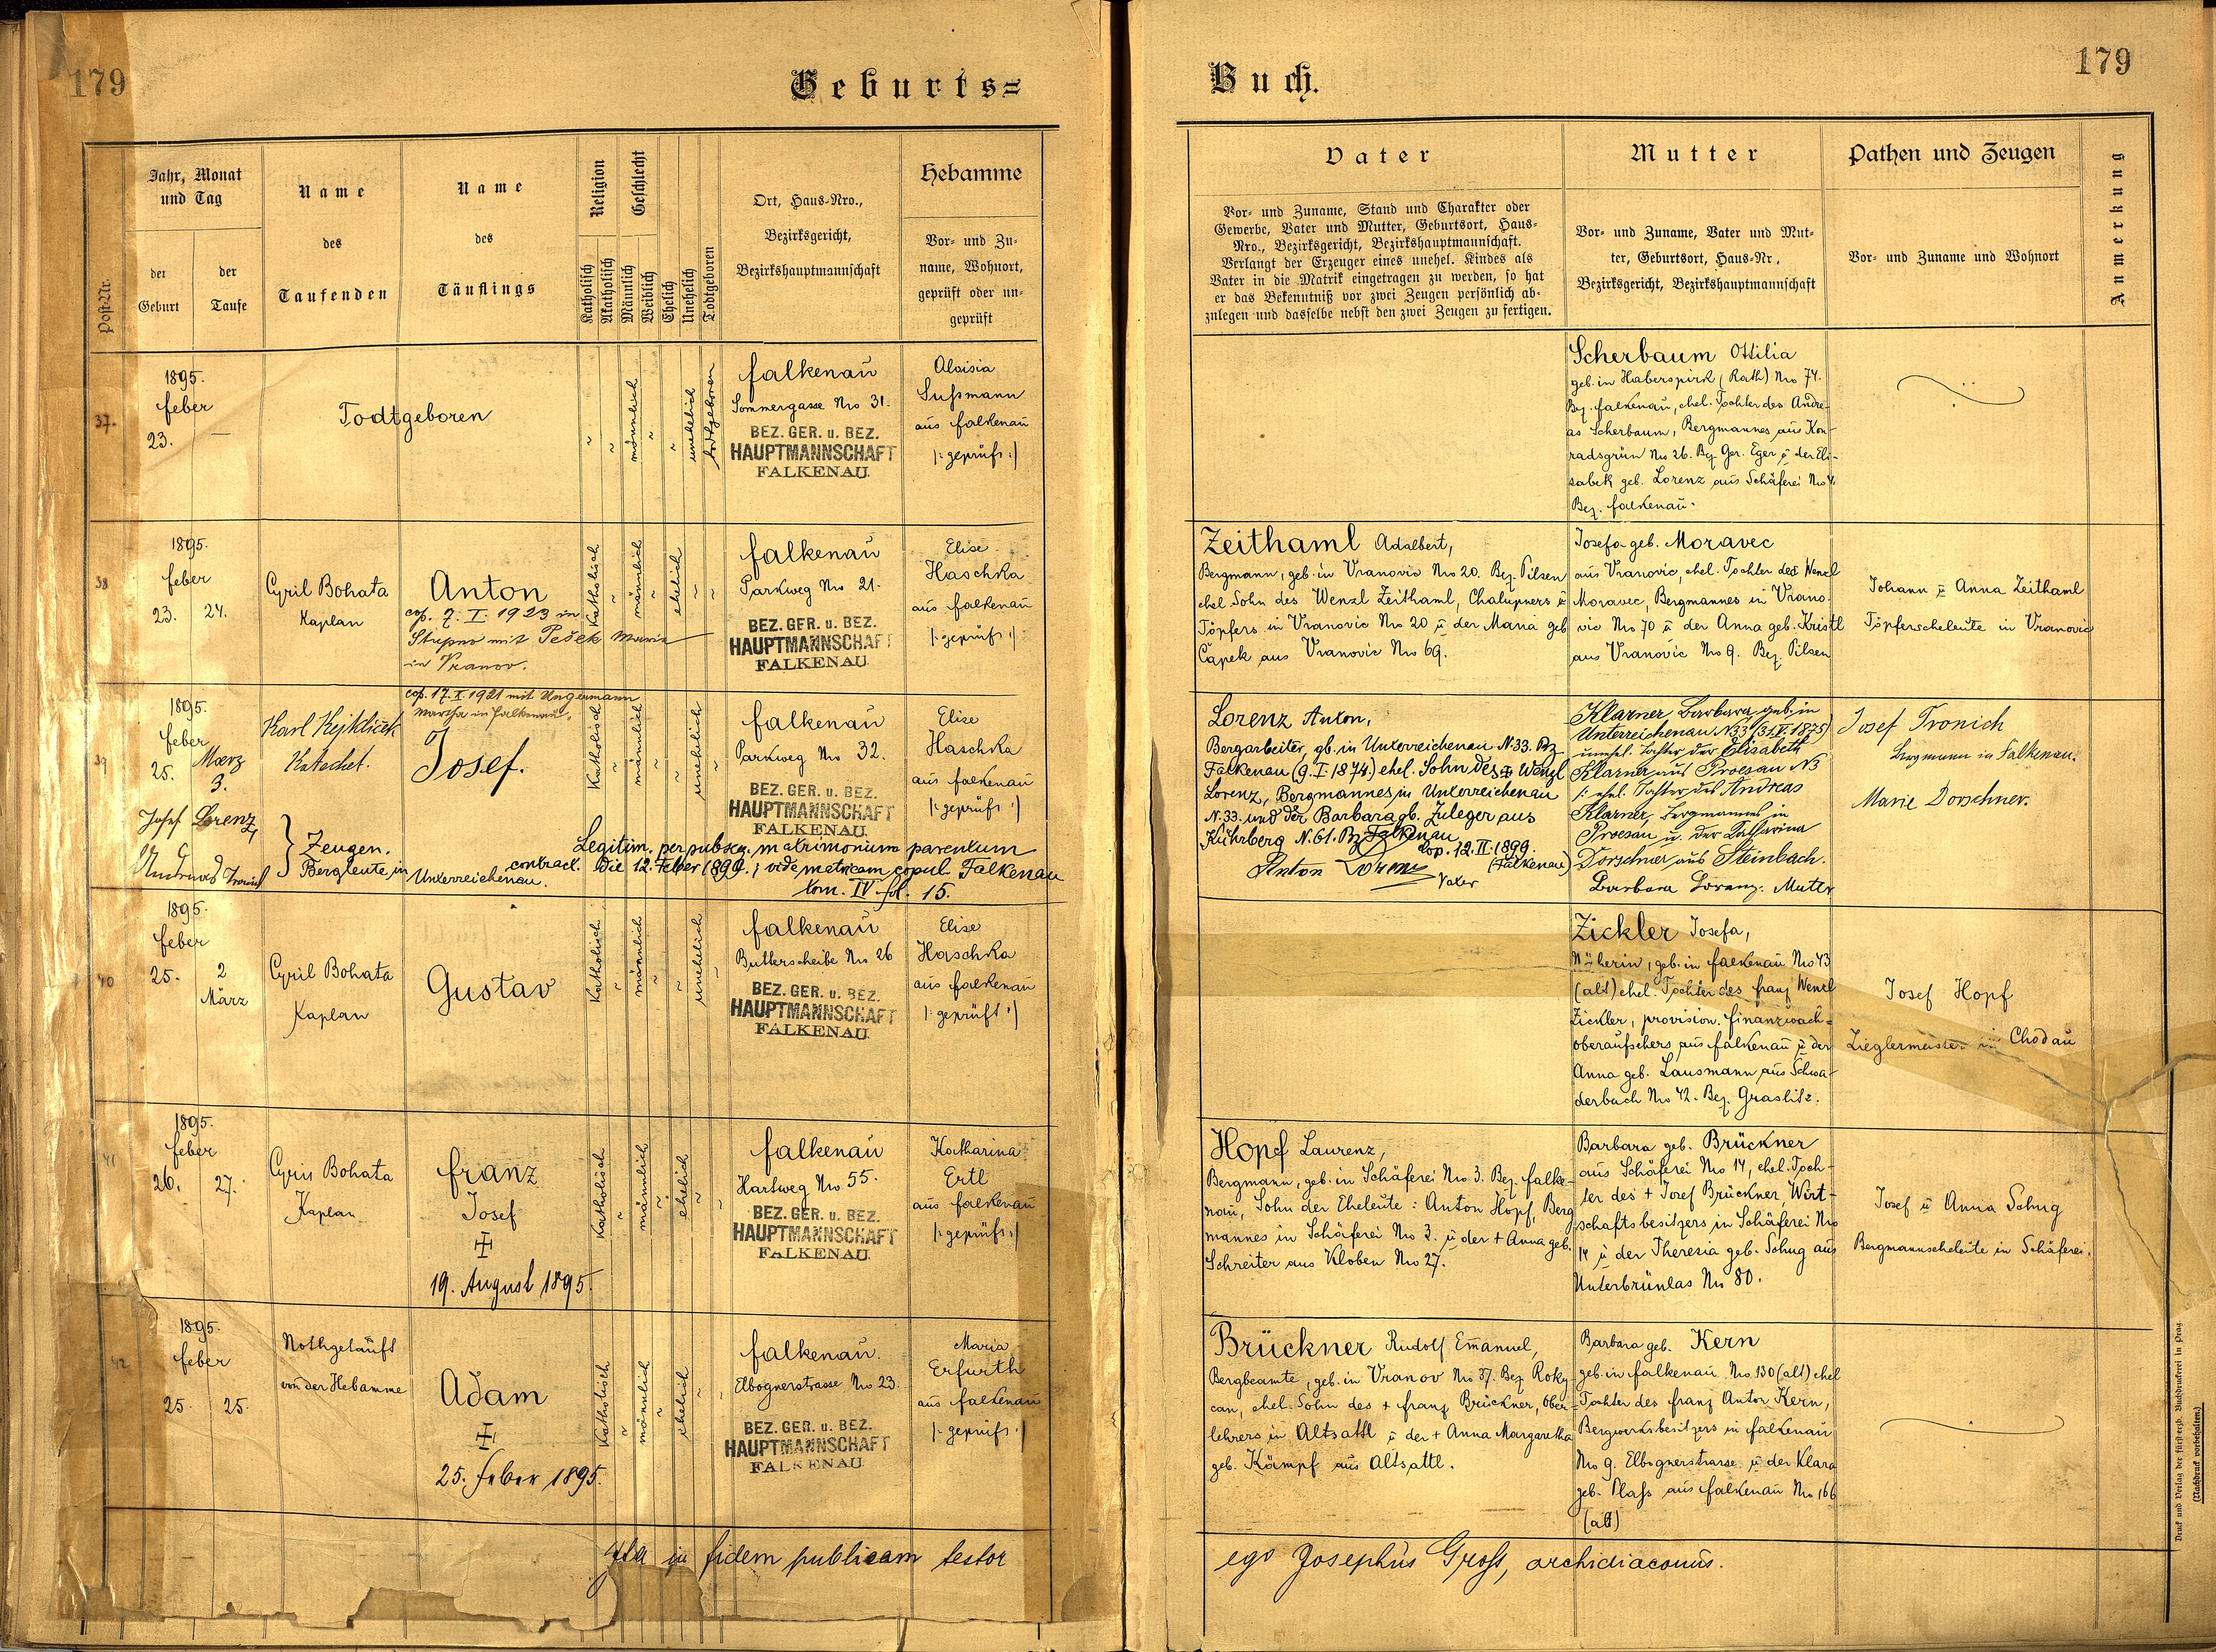 179
Geburts=
Jahr, Monat
und Tag
Post-Nr.
der
Geburt
der
Taufe
Name
des
Taufenden
Name
des
Täuflings
Religion
Katholisch
Akatholisch
Geschlecht
Männlich
Weiblich
Ehelich
Unehelich
Todtgeboren
Ort, Haus-Nro.,
Bezirksgericht,
Bezirkshauptmannschaft
Hebamme
Vor- und Zu-
name, Wohnort,
geprüft oder un-
geprüft
37.
1895.
Feber
23. —
Todtgeboren
männlich
unehelich
todtgeboren
Falkenau
Sommergasse Nro 31.
BEZ. GER. u. BEZ.
HAUPTMANNSCHAFT
FALKENAU
Aloisia
Sußmann
aus Falkenau
/: geprüft :/
38
1895.
Feber
23. 24.
Cyril Bohata
Kaplan
Anton
cop. 7. I. 1923 in
Stupno mit Pešek Maria
in Vranov.
Katholisch
männlich
ehelich
Falkenau
Parkweg Nro 21.
BEZ. GER. u. BEZ.
HAUPTMANNSCHAFT
FALKENAU
Elise
Haschka
aus Falkenau
/: geprüft :/
39
1895.
Feber
25. Maerz
3.
Karl Kejklíček
Katechet.
cop. 17. X. 1921 mit Ungermann
Martha in Falkenau.
Josef.
Katholisch
männlich
unehelich
Falkenau
Parkweg Nro 32.
BEZ. GER. u. BEZ.
HAUPTMANNSCHAFT
FALKENAU
Elise
Haschka
aus Falkenau
/: geprüft :/
Josef Lorenz,
Andreas Tronich
} Zeugen.
Bergleute, in
Unterreichenau.
Legitim. per subsq. matrimonium parentum
contract. Die 12. Feber 1899.; vide matricam copul. Falkenau
tom. IV fol. 15.
40
1895.
Feber
25. 2
März
Cyril Bohata
Kaplan
Gustav
Katholisch
männlich
unehelich
Falkenau
Butterscheibe Nro 26
BEZ. GER. u. BEZ.
HAUPTMANNSCHAFT
FALKENAU
Elise
Haschka
aus Falkenau
/: geprüft :/
41
1895.
Feber
26. 27.
Cyril Bohata
Kaplan
Franz
Josef
19. August 1895.
Katholisch
männlich
ehelich
Falkenau
Hartweg Nro 55.
BEZ. GER. u. BEZ.
HAUPTMANNSCHAFT
FALKENAU
Katharina
Ertl
aus Falkenau
/: geprüft :/
42
1895.
Feber
25. 25.
Nothgetauft
von der Hebamme
Adam
25. Feber 1895.
Katholisch
männlich
ehelich
Falkenau.
Elbognerstrasse Nro 23.
BEZ. GER. u. BEZ.
HAUPTMANNSCHAFT
FALKENAU
Maria
Erfurth
aus Falkenau
/: geprüft :/
Ita in fidem publicam testor
179
Buch.
Vater
Vor- und Zuname, Stand und Charakter oder
Gewerbe, Vater und Mutter, Geburtsort, Haus-
Nro., Bezirksgericht, Bezirkshauptmannschaft.
Verlangt der Erzeuger eines unehel. Kindes als
Vater in die Matrik eingetragen zu werden, so hat
er das Bekenntniß vor zwei Zeugen persönlich ab-
zulegen und dasselbe nebst den zwei Zeugen zu fertigen.
Mutter
Vor- und Zuname, Vater und Mut-
ter, Geburtsort, Haus-Nr,
Bezirksgericht, Bezirkshauptmannschaft
Pathen und Zeugen
Vor- und Zuname und Wohnort
Anmerkung
Scherbaum Ottilia
geb. in Haberspirk (Rath) Nro 74.
Bez. Falkenau, ehel. Tochter des Andre-
as Scherbaum, Bergmannes aus Kon-
radsgrün Nro 26. Bez. Ger. Eger u der Eli-
sabek geb. Lorenz aus Schäferei Nro 4.
Bez. Falkenau.
Zeithaml Adalbert,
Bergmann, geb. in Vranovic Nro 20. Bez. Pilsen
ehel. Sohn des Wenzl Zeithaml, Chalupners u
Töpfers in Vranovic Nro 20 u der Maria geb
Čapek aus Vranovic Nro 69.
Josefa geb. Moravec
aus Vranovic, ehel. Tochter des Wenzl
Moravec, Bergmannes in Vrano-
vic Nro 70 u der Anna geb. Kristl
aus Vranovic Nro 9. Bez. Pilsen
Johann u Anna Zeithaml
Töpferseheleute in Vranovic
Lorenz Anton,
Bergarbeiter, gb. in Unterreichenau N. 33. Bz
Falkenau (9. I. 1874.) ehel. Sohn des Wenzl
Lorenz, Bergmannes in Unterreichenau
N. 33. und der Barbara gb. Zuleger aus
Kührberg N. 61. Bz Falkenau
Cop. 12. II. 1899.
(Falkenau)
Anton Lorenz
Vater
Klarner Barbara geb. in
Unterreichenau N33 (31.V. 1875)
unehel. Tochter der Elisabeth
Klarner aus Proesau N3
/: ehel. Tochter des Andreas
Klarner, Bergmannes in
Proesau u. der Katharina
Dorschner aus Steinbach.
Barbara Lorenz. Mutter
Josef Tronich
Bergmann in Falkenau.
Marie Dorschner.
Zickler Josefa,
Näherin, geb. in Falkenau Nro 43
(alt) ehel. Tochter des Franz Wenzl
Zickler, provision. Finanzwach-
oberaufsehers aus Falkenau u der
Anna geb. Lausmann aus Schwa-
derbach Nro 42. Bez. Graslitz.
Josef Hopf
Zieglermeister in Chodau
Hopf Laurenz,
Bergmann, geb. in Schäferei Nro 3. Bez. Falke-
nau, Sohn der Eheleute: Anton Hopf, Berg
mannes in Schäferei Nro 3. u der + Anna geb.
Schreiter aus Kloben Nro 27.
Barbara geb. Brückner
aus Schäferei Nro 14, ehel. Toch-
ter des + Josef Brückner, Wirt-
schaftsbesitzers in Schäferei Nro
14 u der Theresia geb. Schug aus
Unterbrünlas Nro 80.
Josef u Anna Schug
Bergmannseheleute in Schäferei.
Brückner Rudolf Emanuel,
Bergbeamte, geb. in Vranov Nro 37. Bez Roky-
can, ehel. Sohn des + Franz Brückner, Ober-
lehrers in Altsattl u der + Anna Margaretha
geb. Kämpf aus Altsattl.
Barbara geb. Kern
geb. in Falkenau Nro 130 (alt) ehel
Tochter des Franz Anton Kern,
Bergwerksbesitzers in Falkenau
Nro 9. Elbognerstrasse u der Klara
geb. Plaß aus Falkenau Nro 166
(alt)
ego Josephus Groß, archidiaconus.
Druck und Verlag der fürsterzb. Buchdruckerei in Prag
(Nachdruck vorbehalten.)